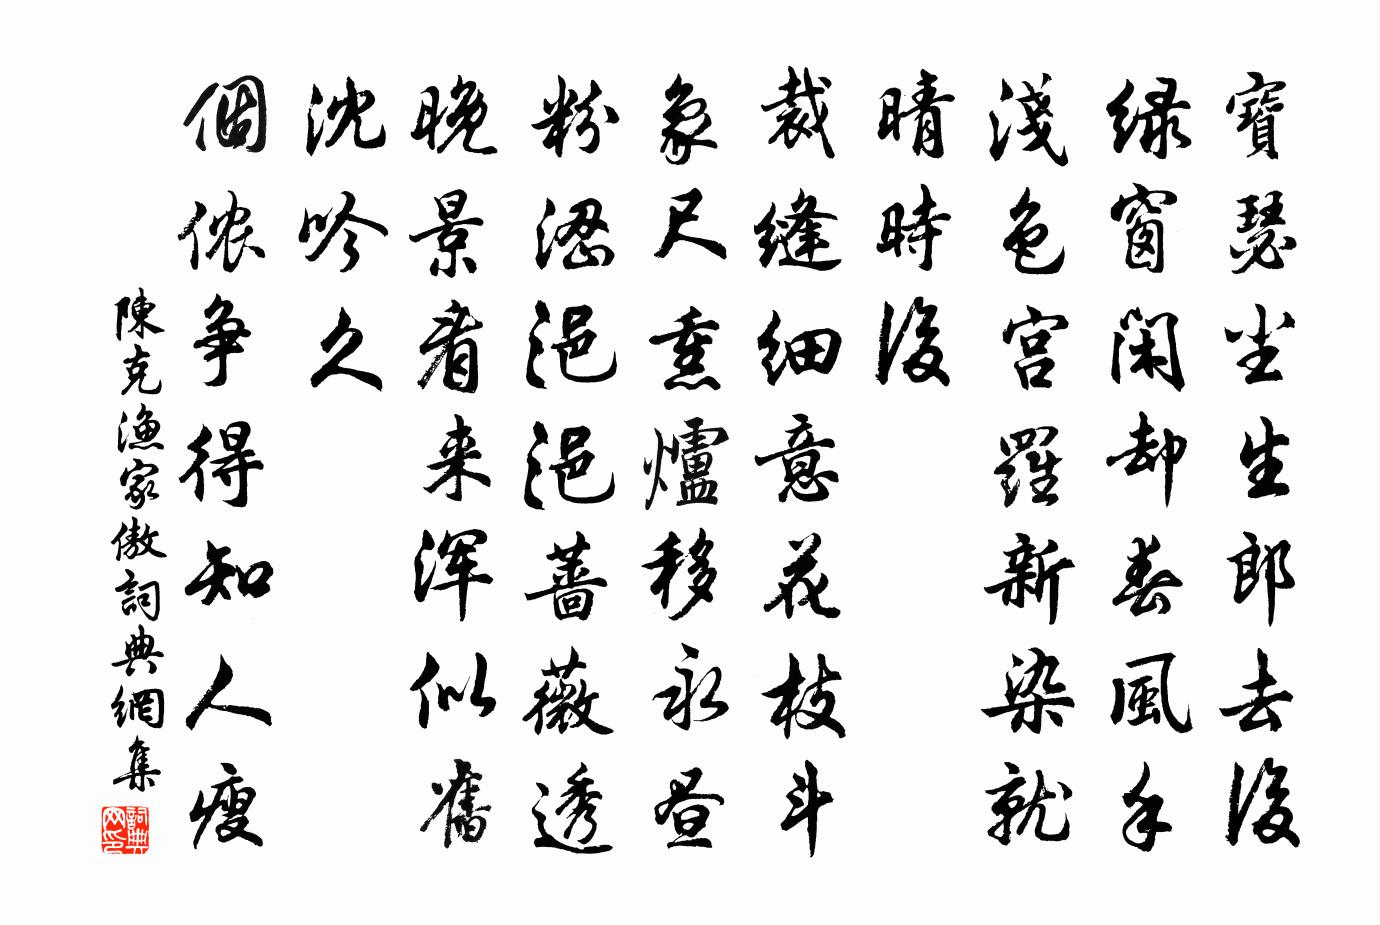 寶瑟尘生郎去後
绿窗闲却春風手
淺色宫羅新染就
晴時後
裁縫细意花枝斗
象尺熏爐移永昼
粉浥浥浥蔷薇透
晚景看来浑似舊
沈吟久
個侬争得知人瘦
陳克渔家傲詞典網集
詞典网印